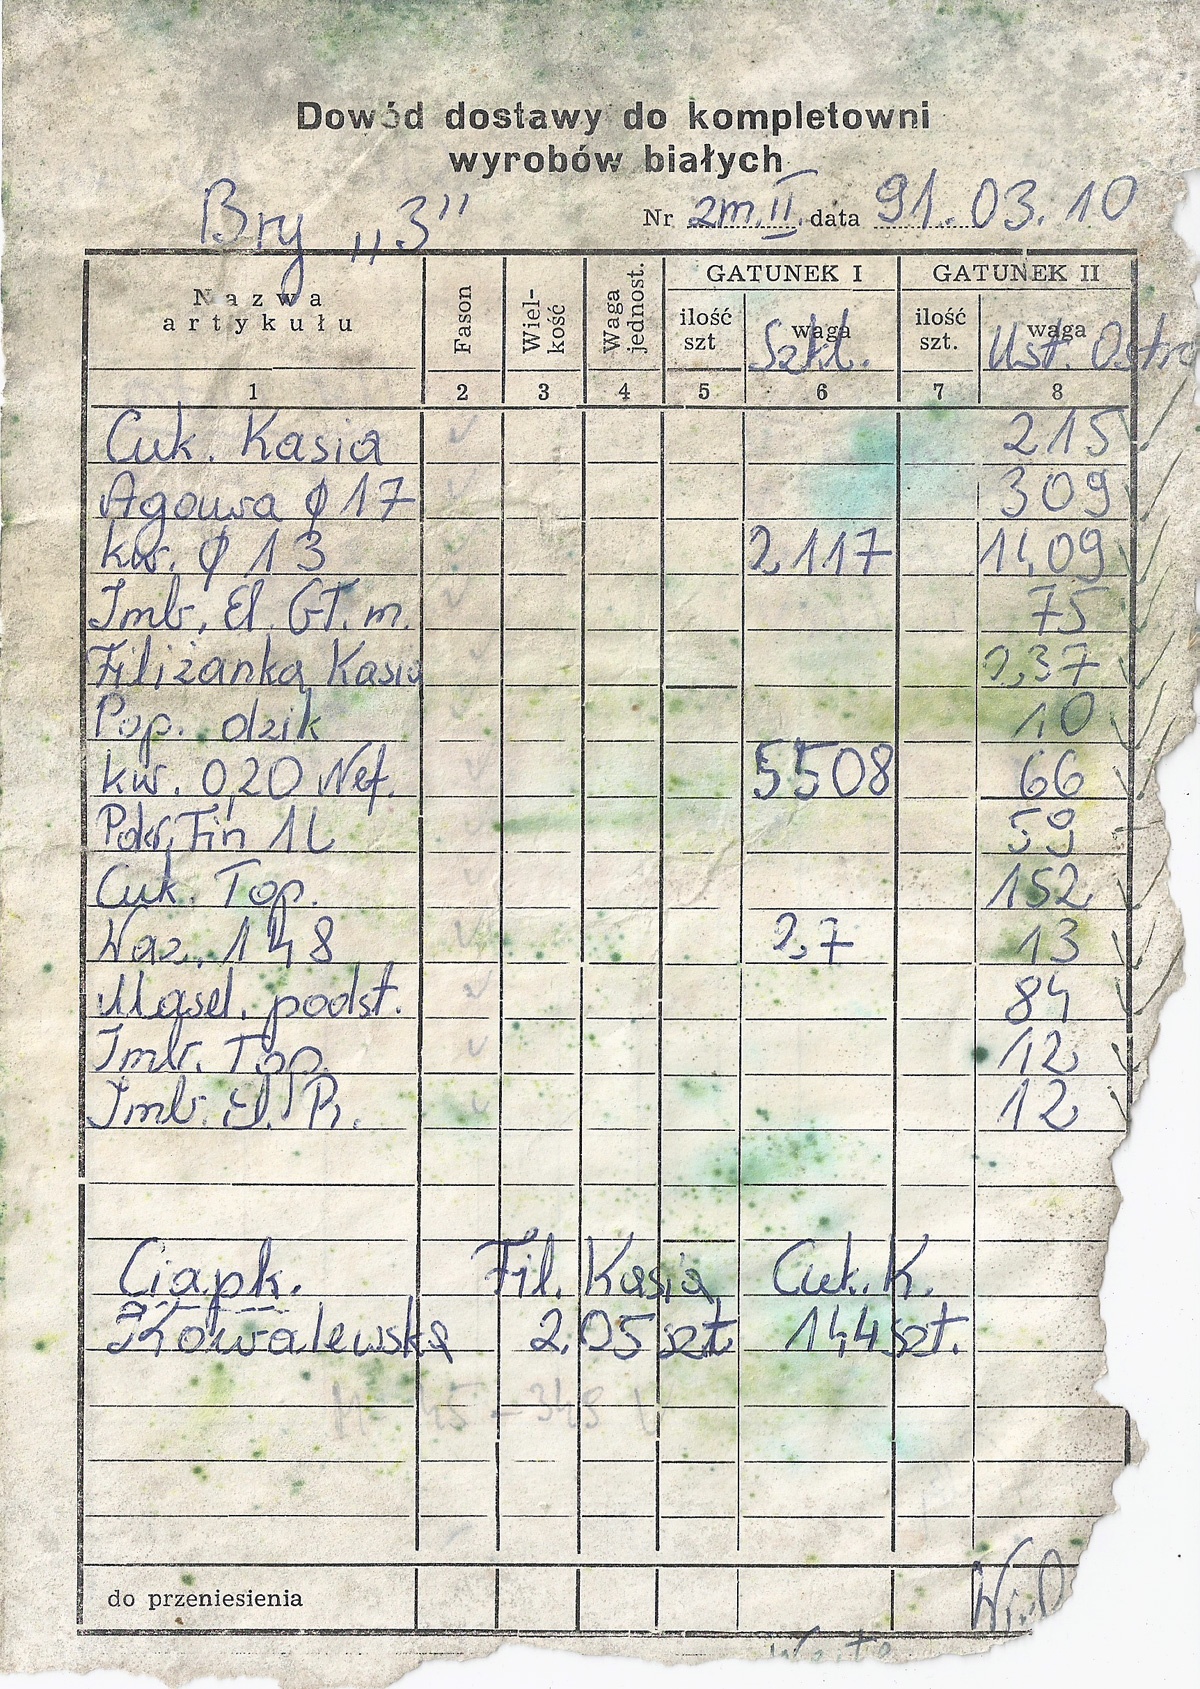 Dowód dostawy do kompletowni
wyrobów białych
Bry „3” Nr 2m.II. data 91.03.10
Nazwa artykułu Fason Wiel-kość Waga jednost. GATUNEK I GATUNEK II
ilość szt waga ilość szt. waga
Szkl. Ust. Ostro
1 2 3 4 5 6 7 8
Cuk. Kasia 215
Agawa ϕ 17 309
kw. ϕ 13 2117 1409
Imb. El. GT. m. 75
Filiżanka Kasia 237
Pop. dzik 10
kw. 0,20 Nef. 5508 66
Pokr. Fin 1L 59
Cuk. Top. 152
Waz. 148 27 13
Masel. podst. 84
Imb. Top. 12
Imb. El. P. 12
Ciapk. Fil. Kasia Cuk. K.
Kowalewska 205 szt 144 szt.
45 - 348
do przeniesienia